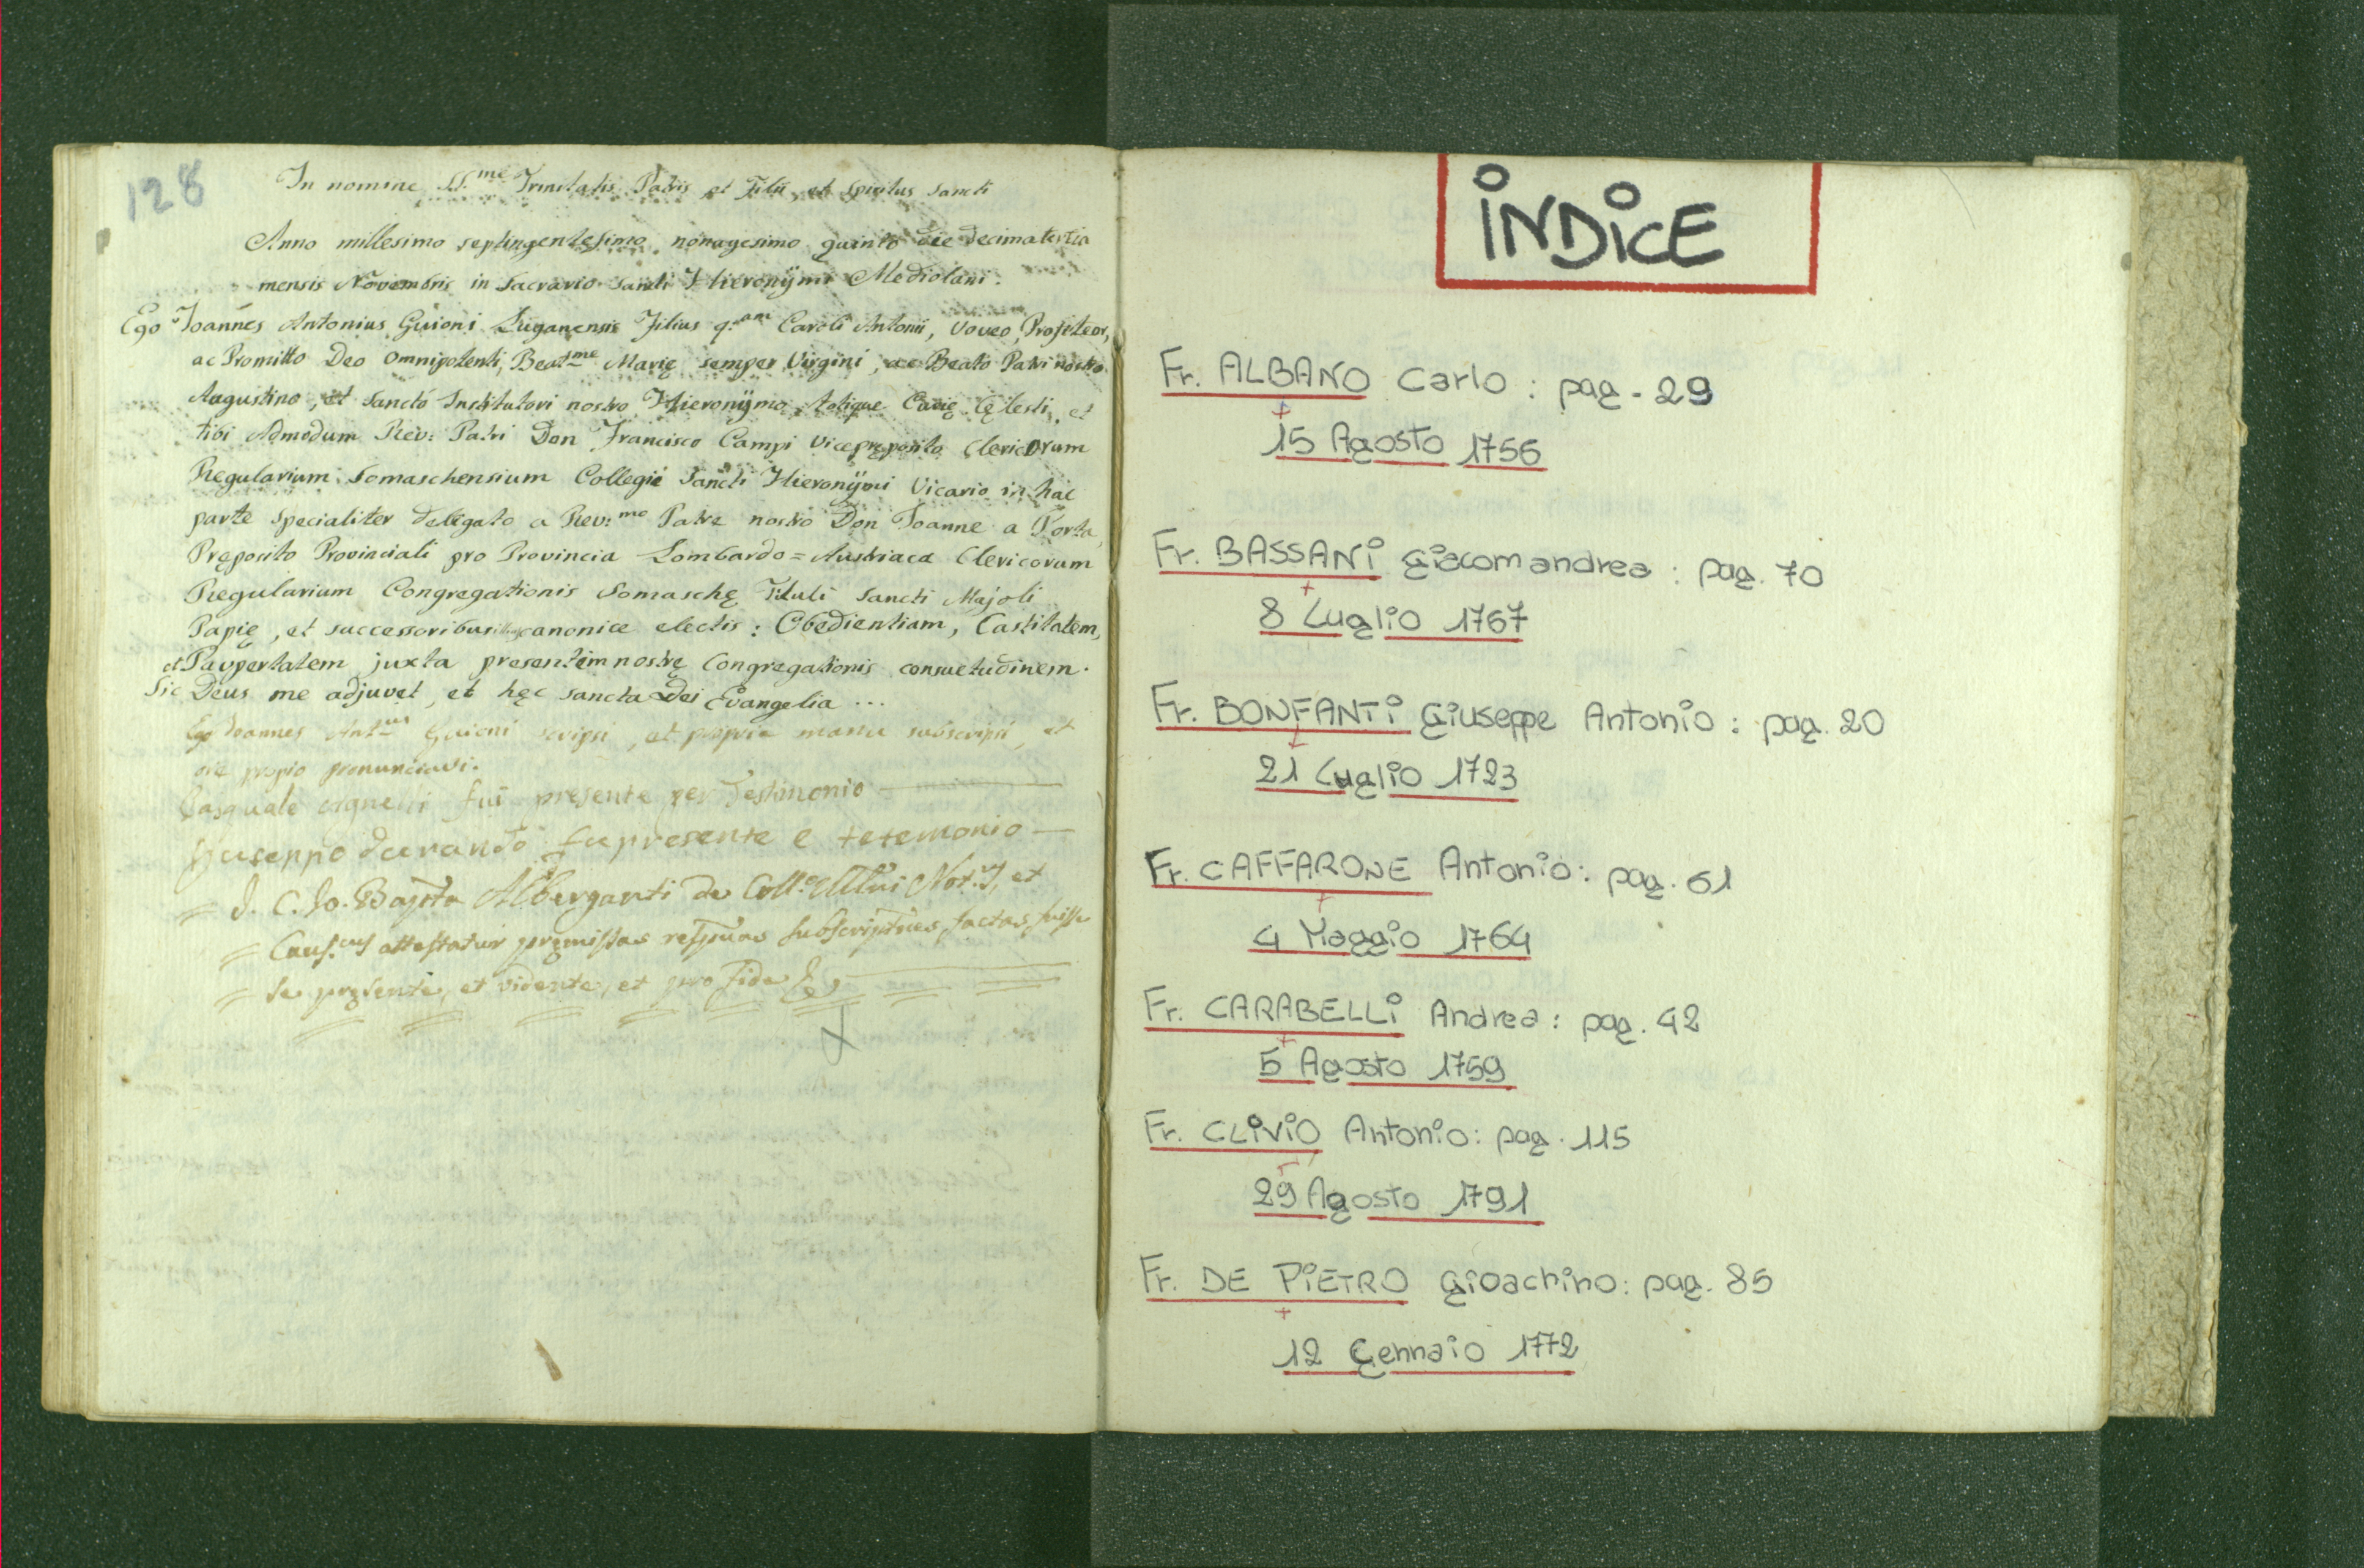 128
In nomine SS.me Trinitatis Patris et Filii, et Spiritus Sancti
Anno millesimo septingentesimo nonagesimo quinto die decimatertia
mensis Novembris in Sacrario Sancti Hieronÿmi Mediolani.
Ego Joannes Antonius Guioni Luganensis Filius q.am Caroli Antonii, Voveo, Profiteor,
ac Promitto Deo Omnipotenti, Beat.me Marię semper Virgini, ac Beato Patri nostro
Augustino, et Sancto Institutori nostro Hieronÿmo, totique Curię Cęlesti, et
tibi Admodum Rev: Patri Don Francisco Campi Vicepręposito Clericorum
Regularium Somaschensium Collegii Sancti Hieronÿmi Vicario in hac
parte specialiter delegato a Rev:mo Patre nostro Don Joanne a Porta,
Pręposito Provinciali pro Provincia Lombardo=Austriaca Clericorum
Regularium Congregationis Somaschę Tituli Sancti Majoli
Papię, et successoribus canonice electis: Obedientiam, Castitatem,
et Paupertatem juxta presentem nostrę Congregationis consuetudinem.
Sic Deus me adjuvet, et hęc sancta Dei Evangelia ...
Ego Joannes Ant.us Guioni scripsi, et propria manu subscripsi, et
ore propio pronunciavi.
Pasquale Agnelli fui presente per Testimonio
Giuseppo durando fu presente e tetemonio
= J. C. Jo. Bapta Alberganti de Coll.o Mlni Not.s, et
= Caus.cus attestatur pręmissas respvas subscriptnes factas fuisse
= se pręsente, et vidente, et pro fide &
INDICE
Fr. ALBANO Carlo: pag. 29
+
15 Agosto 1756
Fr. BASSANI Giacomandrea: pag. 70
+
8 Luglio 1767
Fr. BONFANTI Giuseppe Antonio: pag. 20
+
21 Luglio 1723
Fr. CAFFARONE Antonio: pag. 61
+
4 Maggio 1764
Fr. CARABELLI Andrea: pag. 42
+
5 Agosto 1759
Fr. CLIVIO Antonio: pag. 115
+
29 Agosto 1791
Fr. DE PIETRO Gioachino: pag. 85
+
12 Gennaio 1772